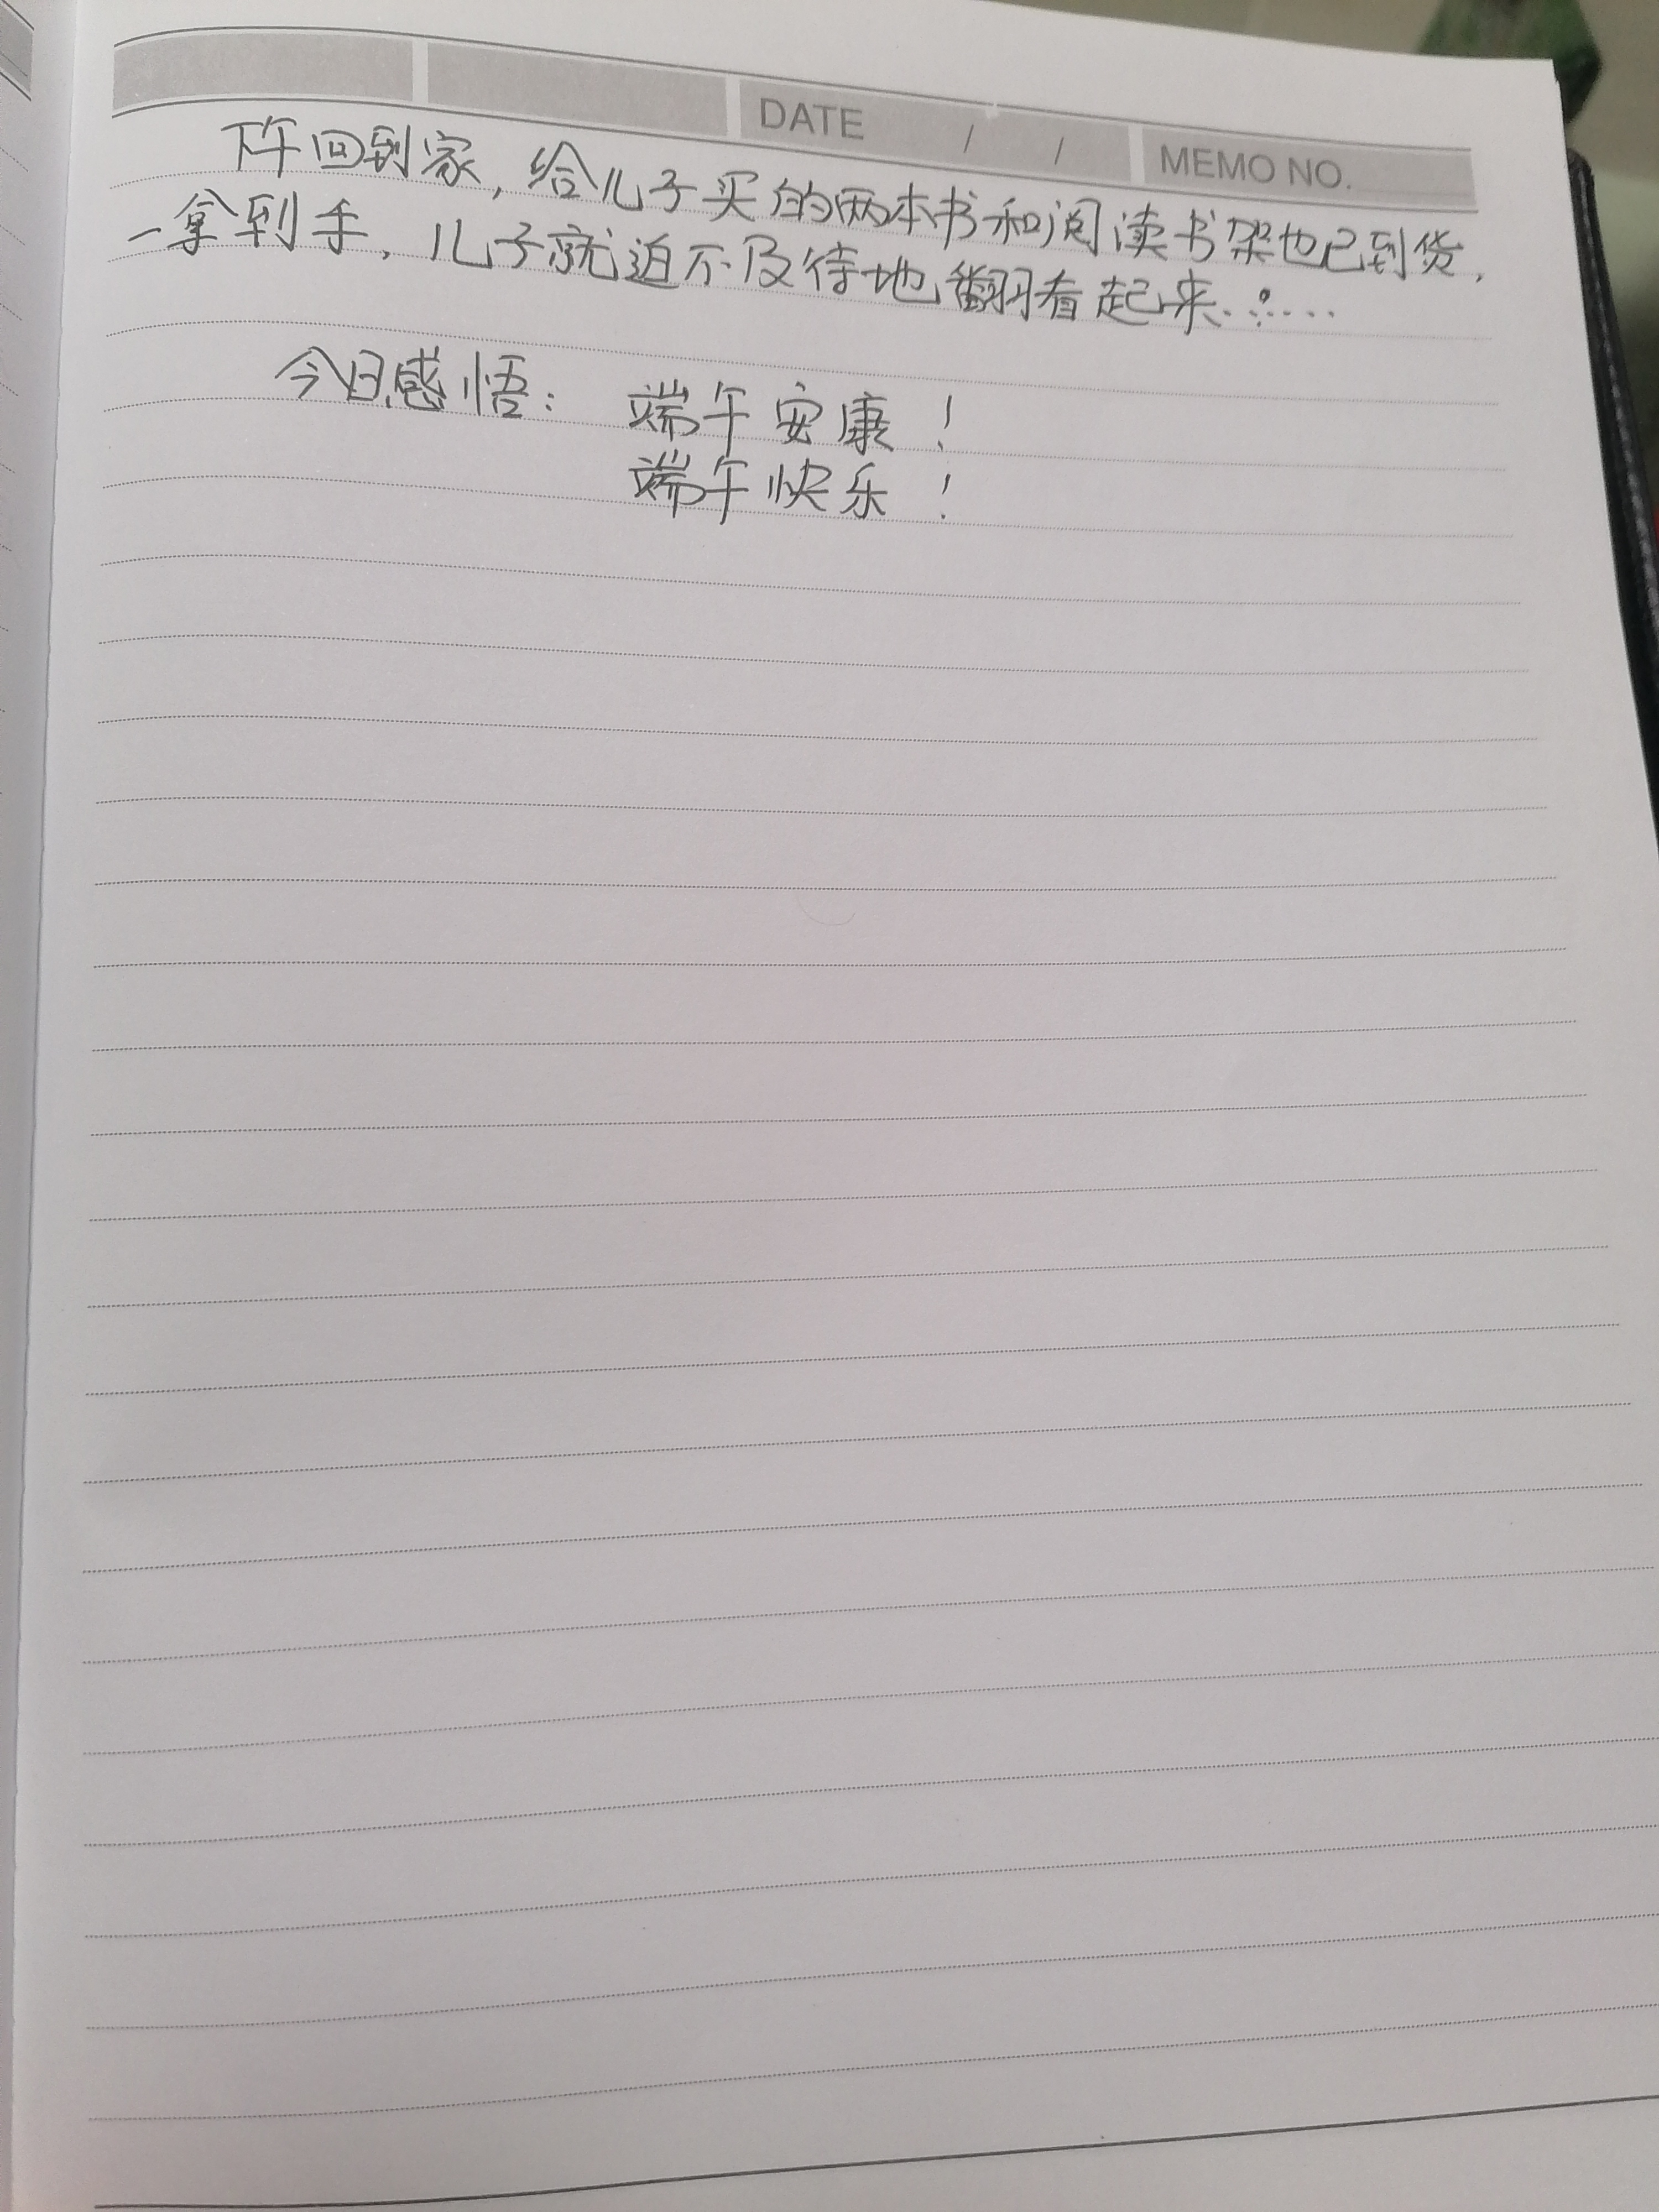 DATE / / MEMO NO.
下午回到家，给儿子买的两本书和阅读书架也已到货，
一拿到手，儿子就迫不及待地翻看起来……
今日感悟：端午安康！
端午快乐！